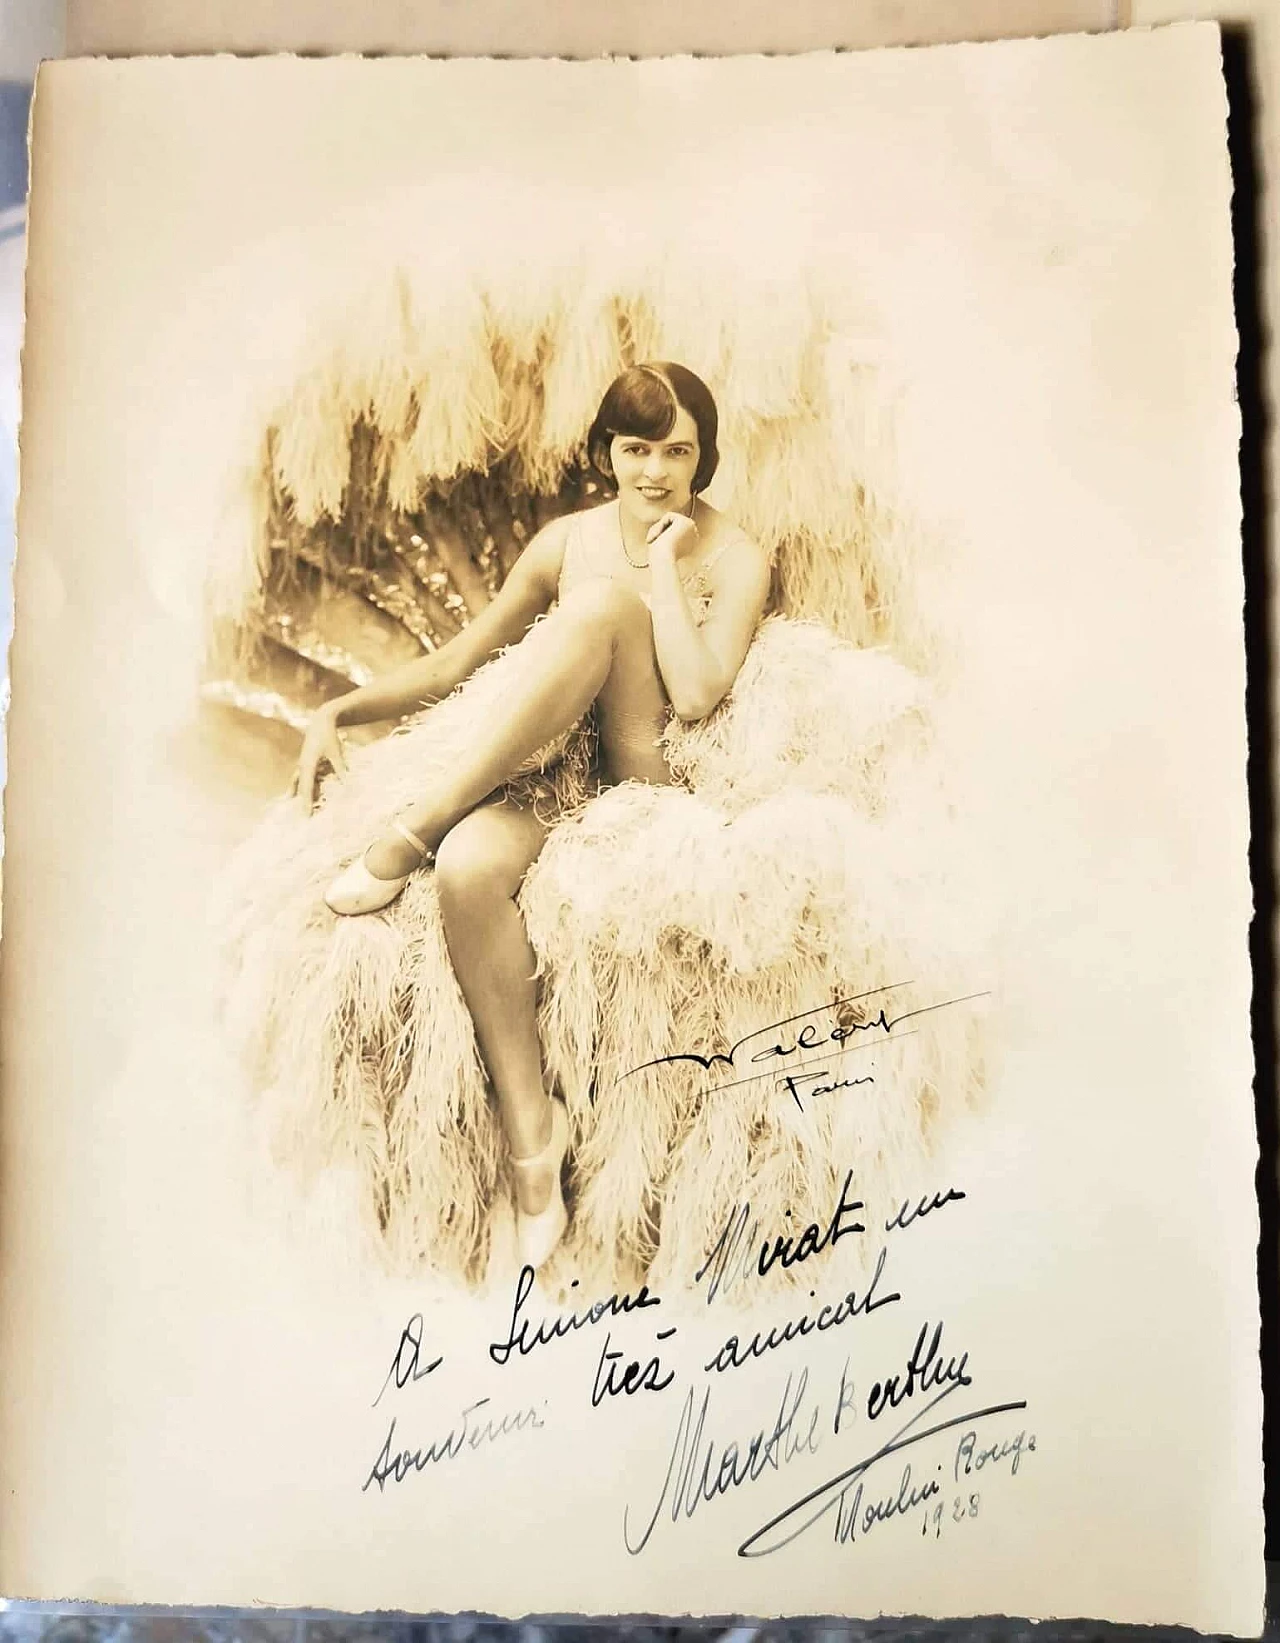 Walery
Paris
A Simone Mirat un
souvenir très amical
Marthe Berthu
Moulin Rouge
1928